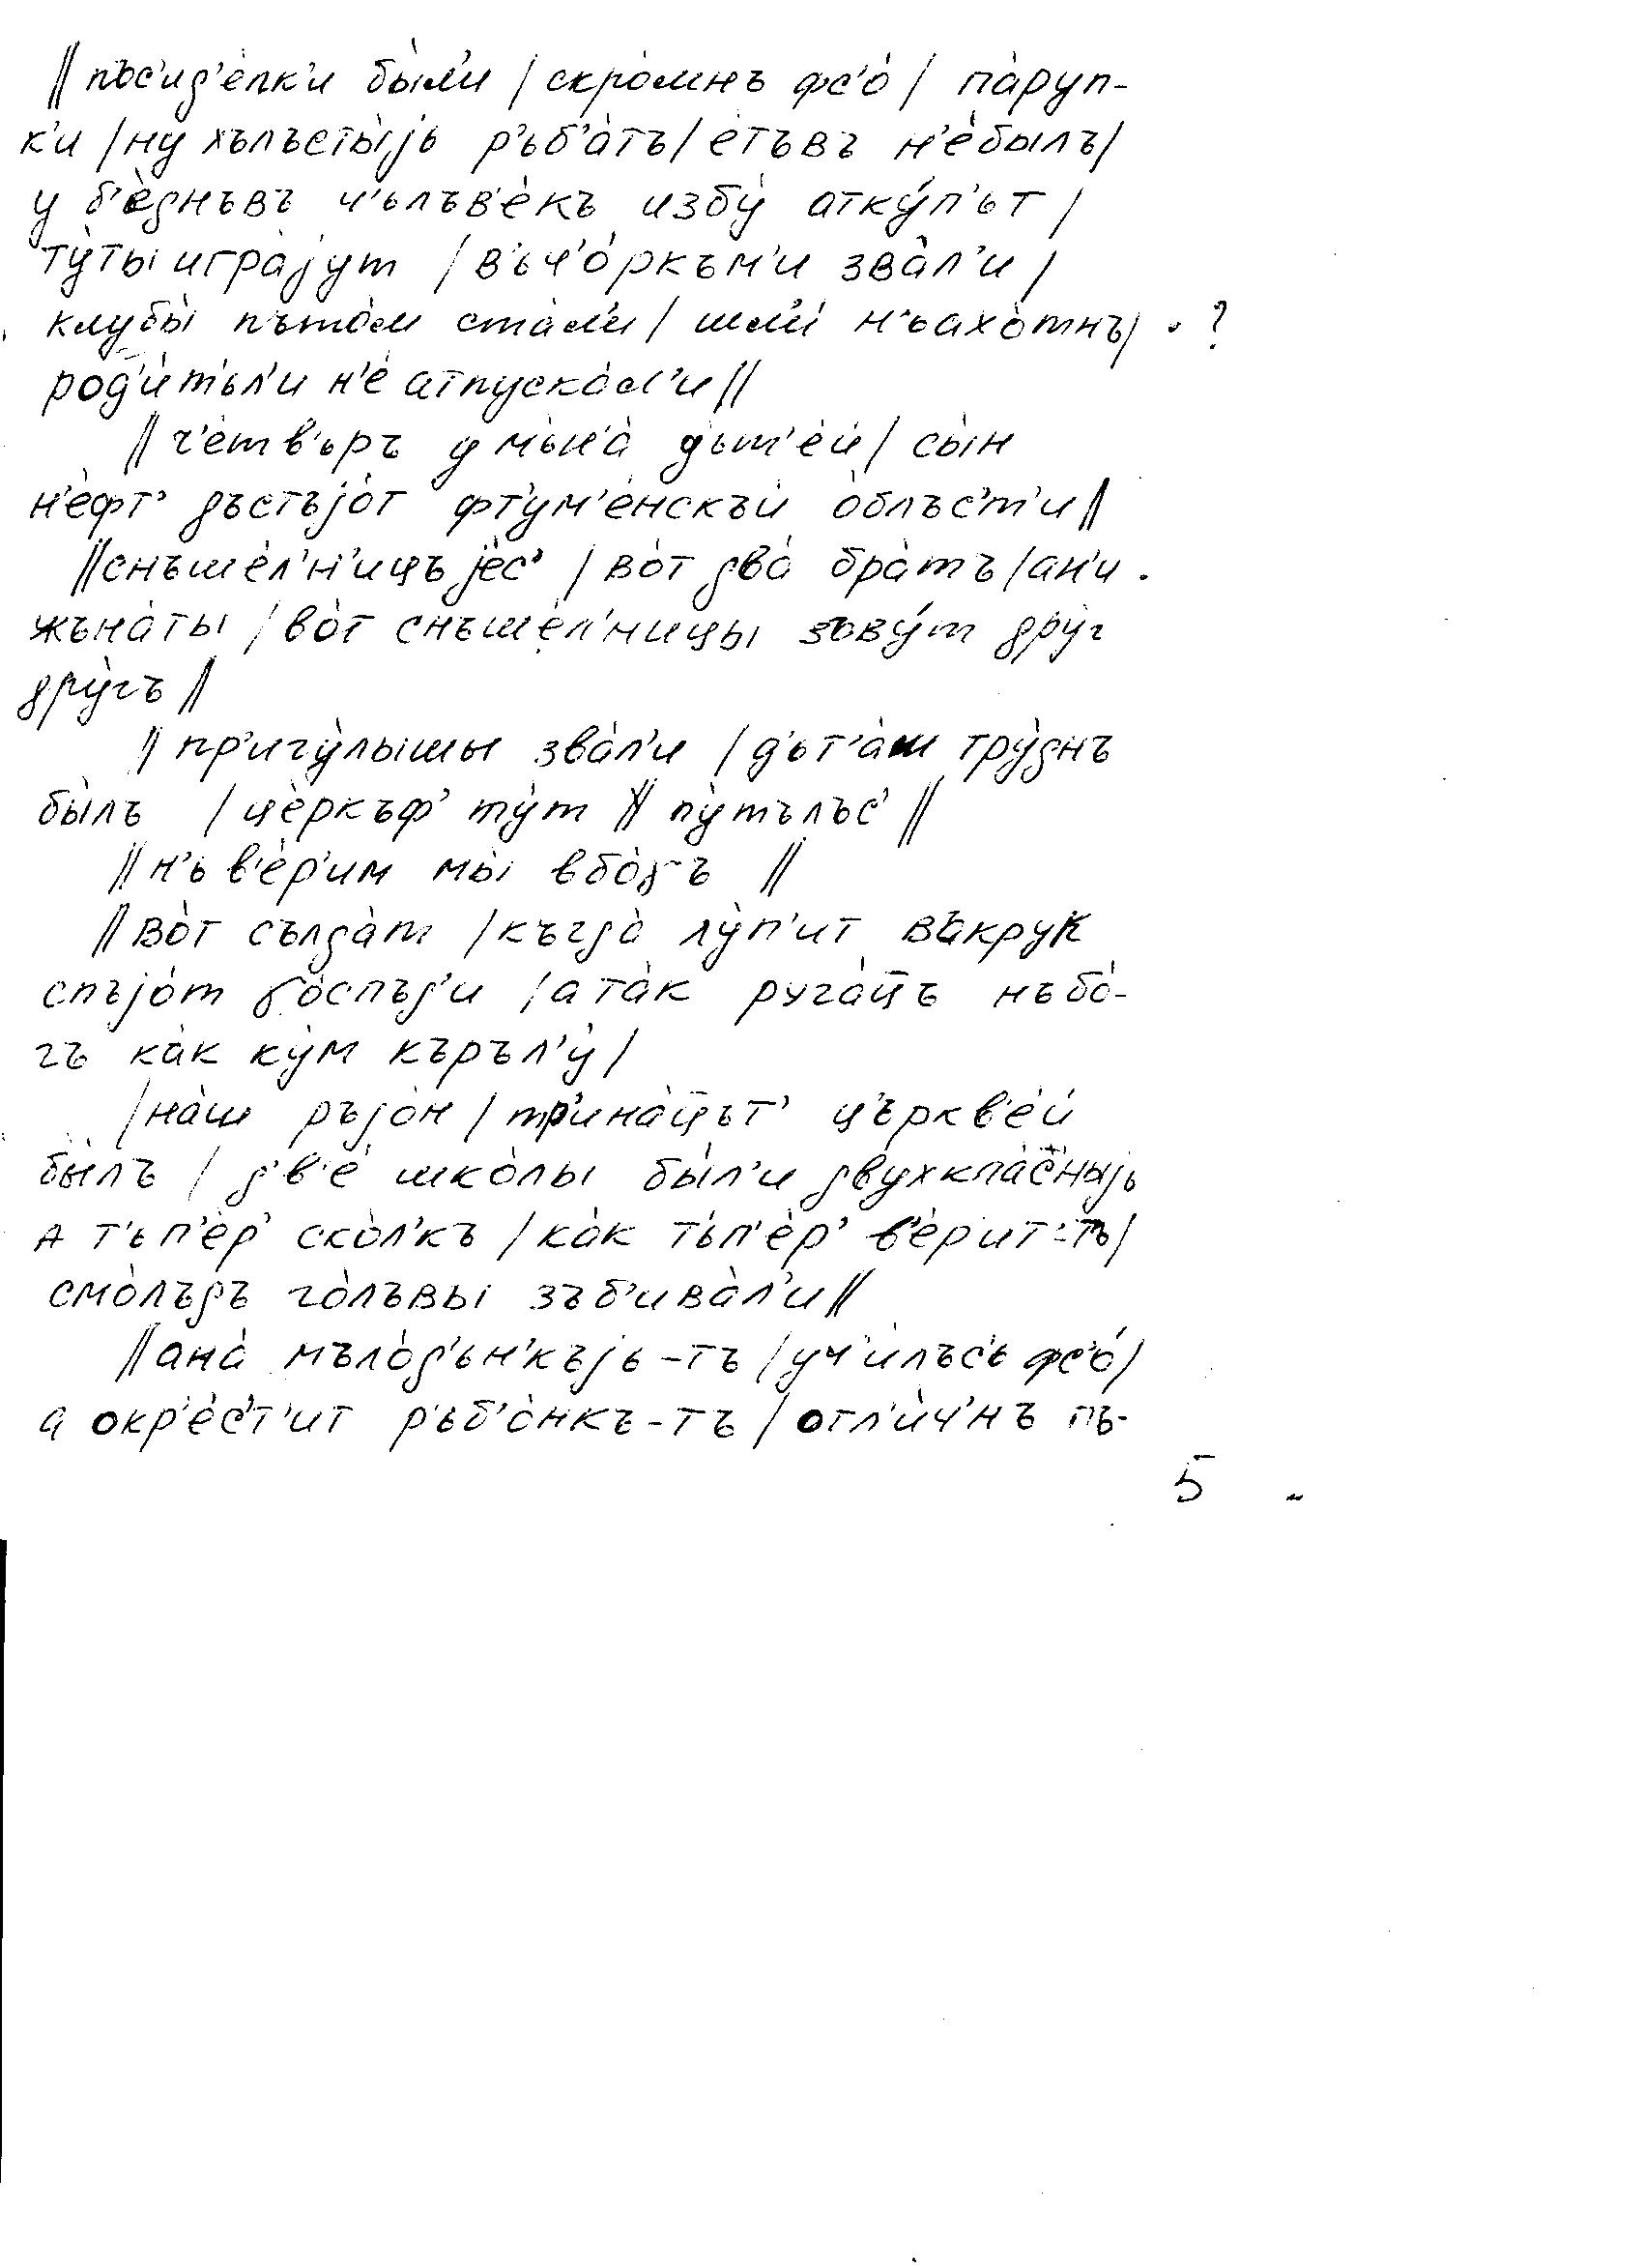 ‖ пъс'ид'ѐлк'и бы̀л'и | скро̀мнъ фс'о́ | па̀руп-
к'и | ну хълъсты̀jь р'ьб'а̀тъ | ѐтъвъ н'ѐбылъ |
у б'ѐднъвъ ч'ьлъв'ѐкъ избу̀ атку́п'ьт |
ту̀ты игра̀jут | в'ьч'о́ркъм'и зва̀л'и |
клубы̀ пъто̀м ста̀л'и | шл'и́ н'ьахо̀тнъ | . ?
род'ѝт'ьл'и н'ѐ атпуска̀л'и ‖
‖ ч'ѐтв'ьръ у м'ьн'а̀ д'ьт'ѐй | сы̀н
н'ѐфт' дъстъjо̀т фт'ум'ѐнскъй о̀блъс'т'и ‖
‖ снъшѐл'н'ицъ jѐс' | во̀т два̀ бра̀тъ | ан'и .
жъна̀ты | во̀т снъшѐл'ницы зъву́т дру̀г
дру̀гъ ‖
‖ пр'игу̀лышы зва̀л'и | д'ьт'а̀м тру̀днъ
бы̀лъ | цѐркъф' ту̀т ‖ пу̀тълъс' ‖
‖ н'ь в'ѐр'им мы̀ вбо̀γъ ‖
‖ во̀т сълда̀т | къгда̀ лу̀п'ит вакру̀к
спъjо́т γо̀спъд'и | а та̀к руга̀ц̄ъ нъбо̀-
гъ ка̀к ку̀м къръл'у̀ |
| на̀ш ръjо̀н | тр'ина̀ц̄ът' църкв'ѐй
бы̀лъ | д'в'ѐ шко̀лы бы̀л'и двухкла̀с̄ныjь
а т'ьп'ѐр' ско̀л'къ | ка̀к т'ьп'ѐр' в'ѐрит'-тъ |
смо̀лъдъ го̀лъвы зъб'ива̀л'и ‖
‖ ана̀ мъло̀д'ьн'къjь-тъ | уч'ѝлъс'ь фс'о́ |
а окр'ѐс'т'ит р'ьб'о̀нкъ-тъ | отл'ѝч'нъ пъ-
5